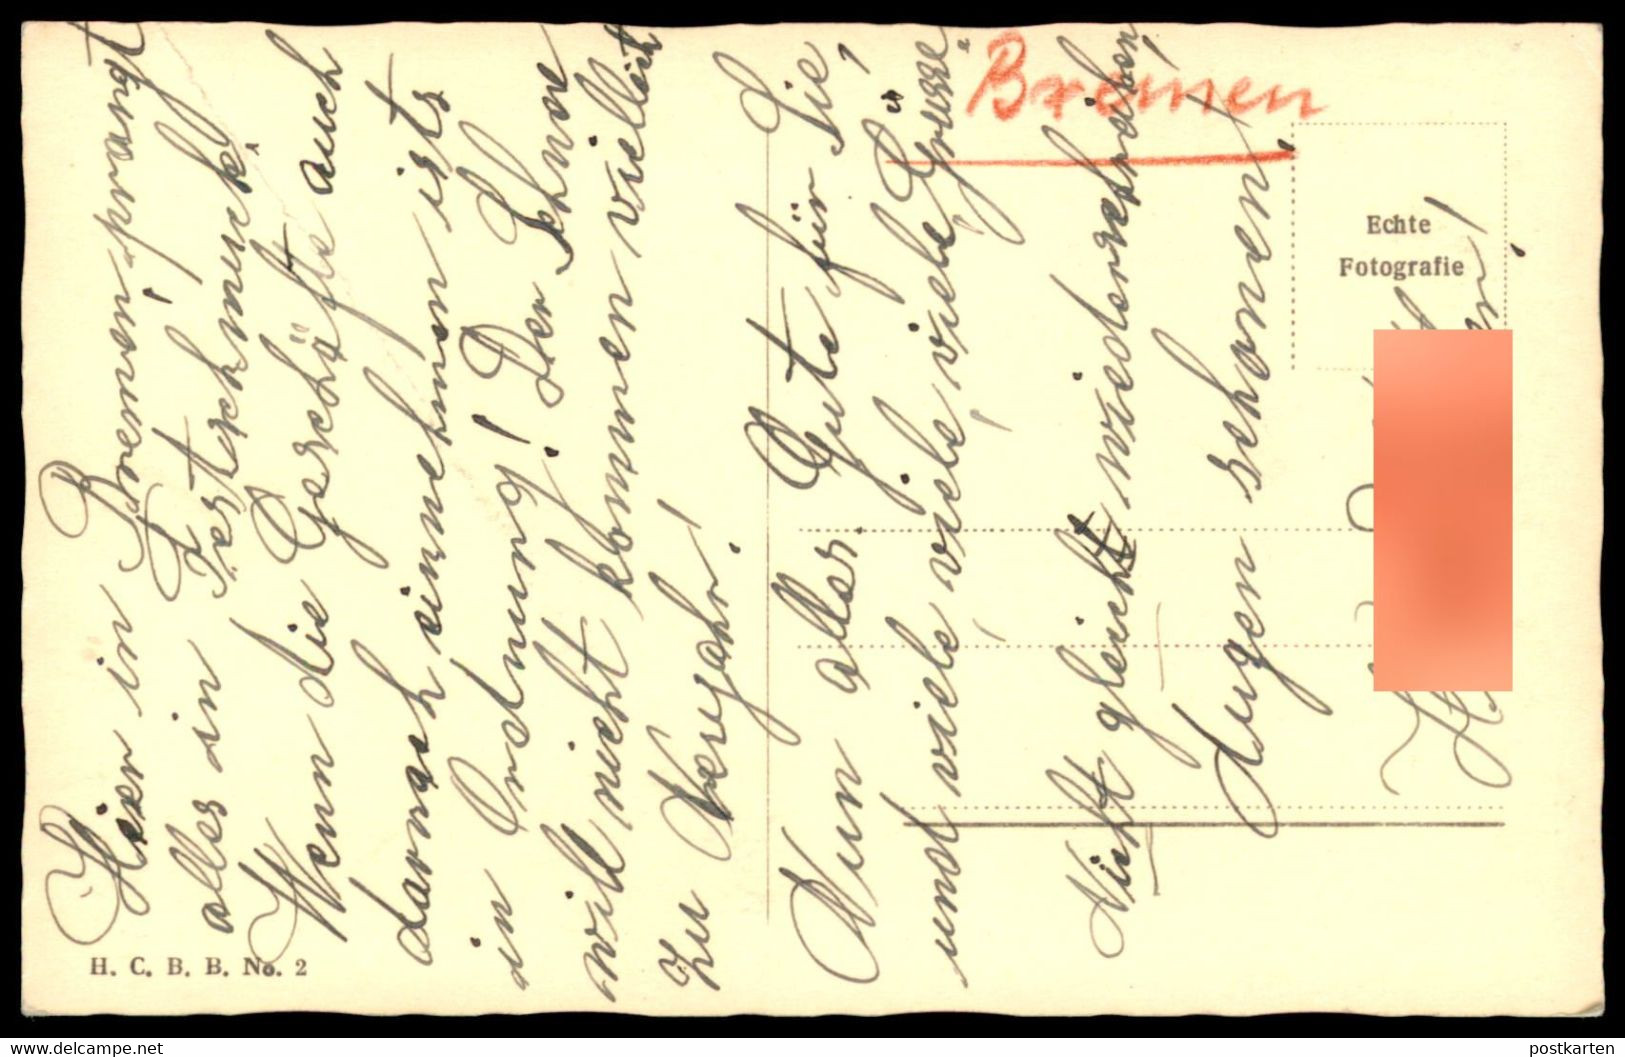 Hier in Bremen prangt
alles in Festschmuck.
Wenn die Geschäfte auch
darnach einnehmen ists
in Ordnung! Der Schnee
will nicht kommen vielleicht
zu Neujahr!
Nun alles Gute für Sie,
und viele viele viele viele Grüsse
Nicht gleich wiederschreiben!
Augen schonen!
Bremen
Echte
Fotografie
H. C. B. B. No. 2
www.delcampe.net
postkarten